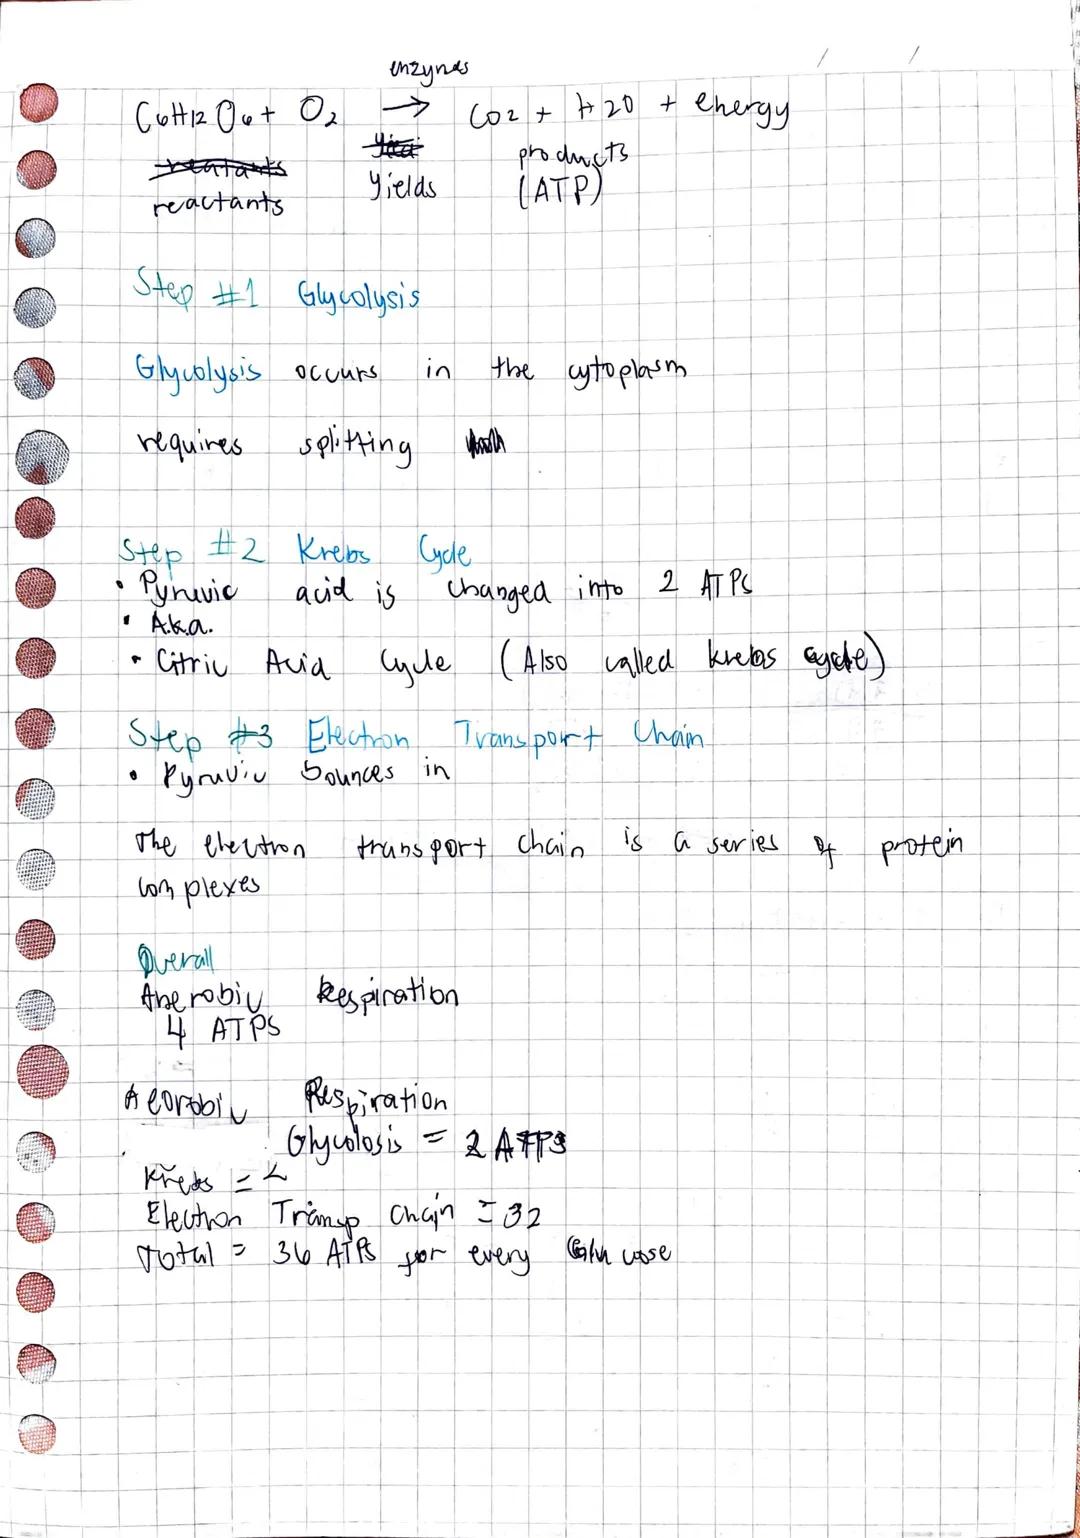 enzymes
C6H12O6 + O2 → CO2 + H2O + energy
products
reactants yields (ATP)
Step #1 Glycolysis
Glycolysis occurs in the cytoplasm
requires splitting
Step #2 Krebs Cycle
• Pyruvic acid is changed into 2 ATPs
• A.k.a.
• Citric Acid Cycle (Also called krebs cycle)
Step #3 Electron Transport Chain
• Pyruvic bounces in
The electron transport chain is a series of protein
complexes
Overall
Anerobic Respiration
4 ATPS
Aeorobic Respiration
Glycolosis = 2 ATPS
Krebs = 2
Electron Transp Chain = 32
Total = 36 ATPs for every Glucose